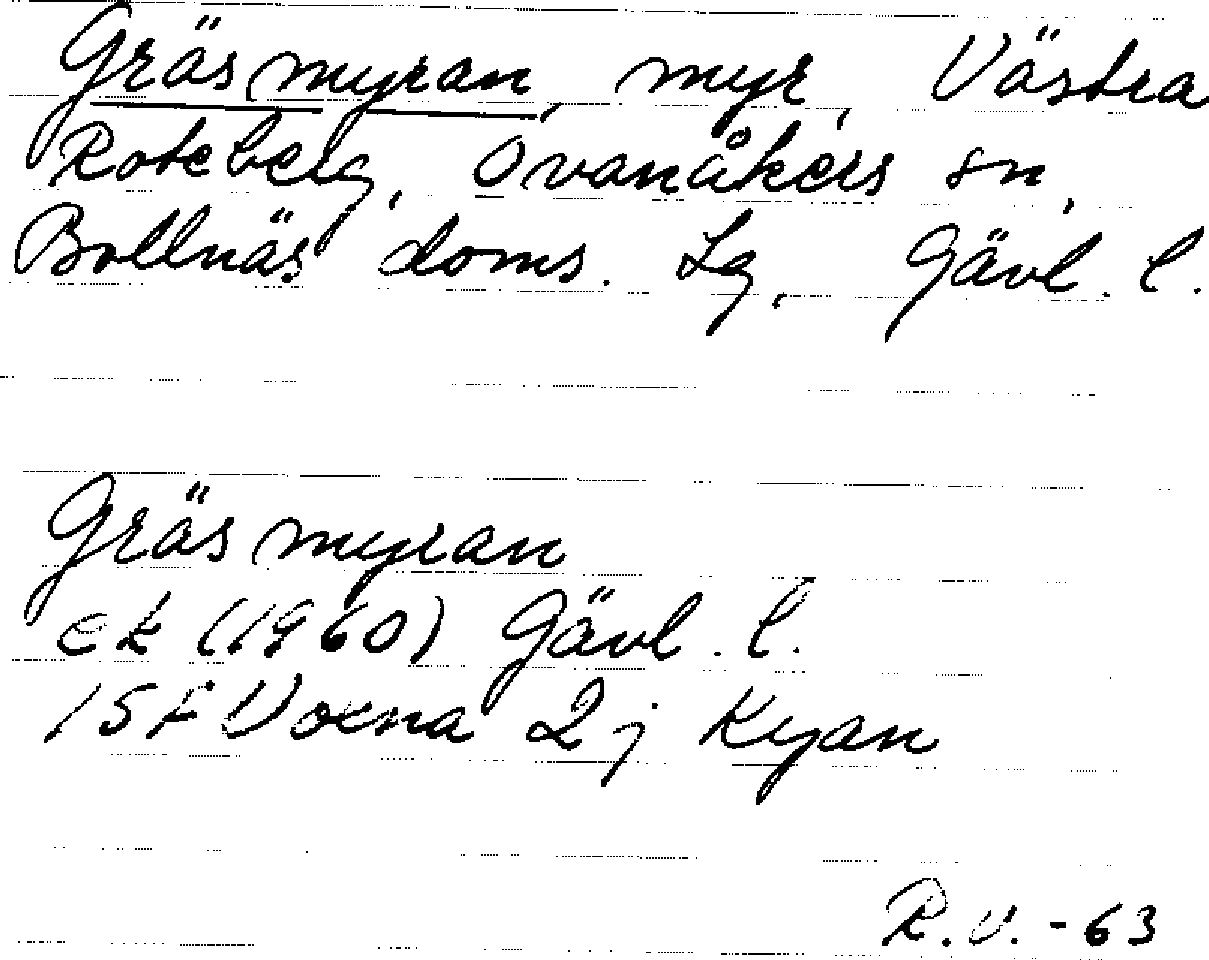 Gräsmyran, myr, Västra
Roteberg, Ovanåkers sn,
Bollnäs doms. Lg, Gävl. l.
Gräsmyran
ek (1960) Gävl. l.
15F Voxna 2j Kyan
R.V. - 63